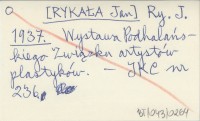 [RYKAŁA Jan] Ry. J.
1937. Wystawa Podhalańs-
kiego Związku artystów
plastyków. – IKC nr
236.